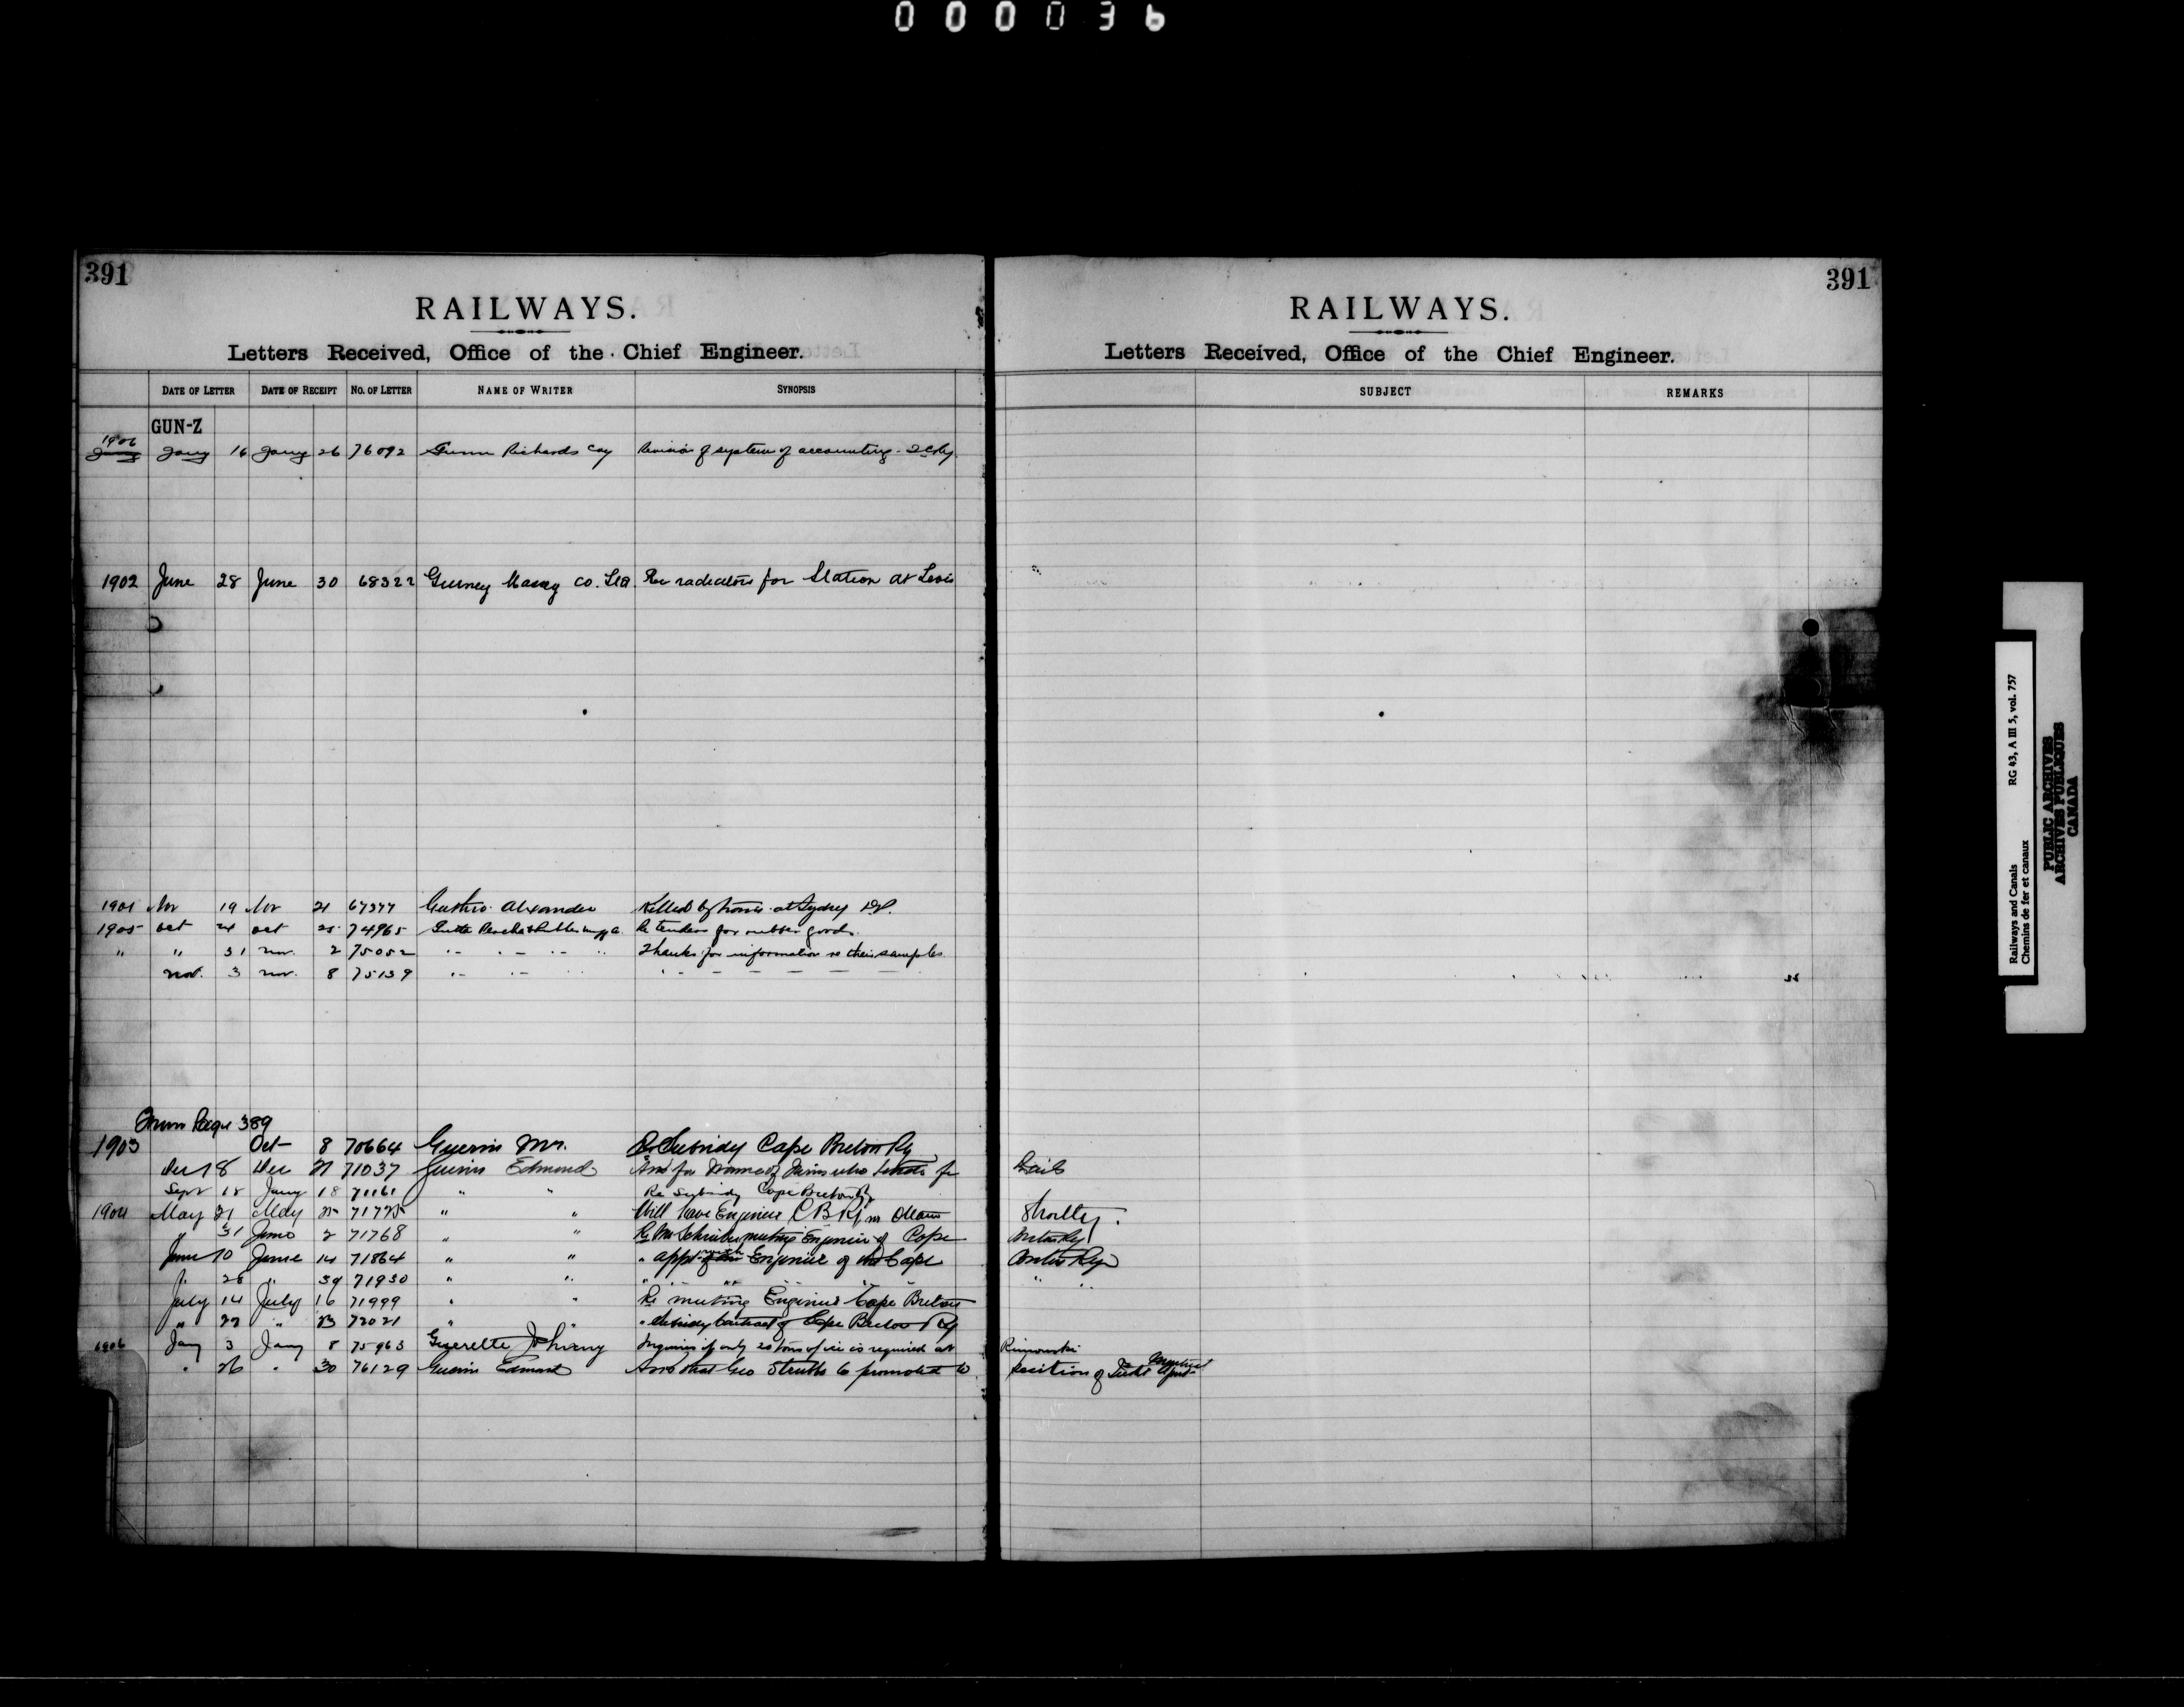 000036
391
RAILWAYS.
Letters Received, Office of the Chief Engineer.
DATE OF LETTER DATE OF RECEIPT NO. OF LETTER NAME OF WRITER SYNOPSIS
GUN-Z
1906 Jany 16 Jany 26 76092 Gunn Richards Coy Revision of system of accounting
1902 June 28 June 30 68322 Gurney Massey Co. Ltd. Re radiators for Station at Levis
1901 Nov 19 Nov 21 67377 Guthro Alexander Killed by train at Sydney
1905 Oct 24 Oct 25 74965 Gutta Percha & Rubber Re tenders for rubber goods
" " 31 Nov. 2 75052 Thanks for information re their samples
Nov. 3 Nov. 8 75139
From Page 389
1903 Oct 8 70664 Guerin Mr. Re Subsidy Cape Breton Ry
Dec 18 Dec 21 71037 Guerin Edmond for Names of who for
Sept 18 Jany 18 71161 " " Re subsidy Cape Breton Ry
1904 May 21 May 25 71725 " " Will have Engineer C B Ry in Ottawa
" 31 June 2 71768 " " Re Mr Schreiber meeting Engineer of Cape
June 10 June 14 71864 " " " appt Engineer of Cape
26 " 71930 " "
July 14 July 16 71999 " " Re meeting Engineer Cape Breton
" 22 " 23 72021 " " " Subsidy Contract of Cape Breton Ry
1906 Jany 3 Jany 8 75963 Guerette Inquiries if only 20 tons of ice is required at
" 26 " 30 76129 Guerin Edmond that Geo Struthe be promoted to
391
RAILWAYS.
Letters Received, Office of the Chief Engineer.
SUBJECT REMARKS
Rails
Shortly.
Breton Ry
Breton Ry
" "
Rimouski
position of Ticket Agent
Railways and Canals RG 43, A III 5, vol. 757
Chemins de fer et canaux
PUBLIC ARCHIVES
ARCHIVES PUBLIQUES
CANADA